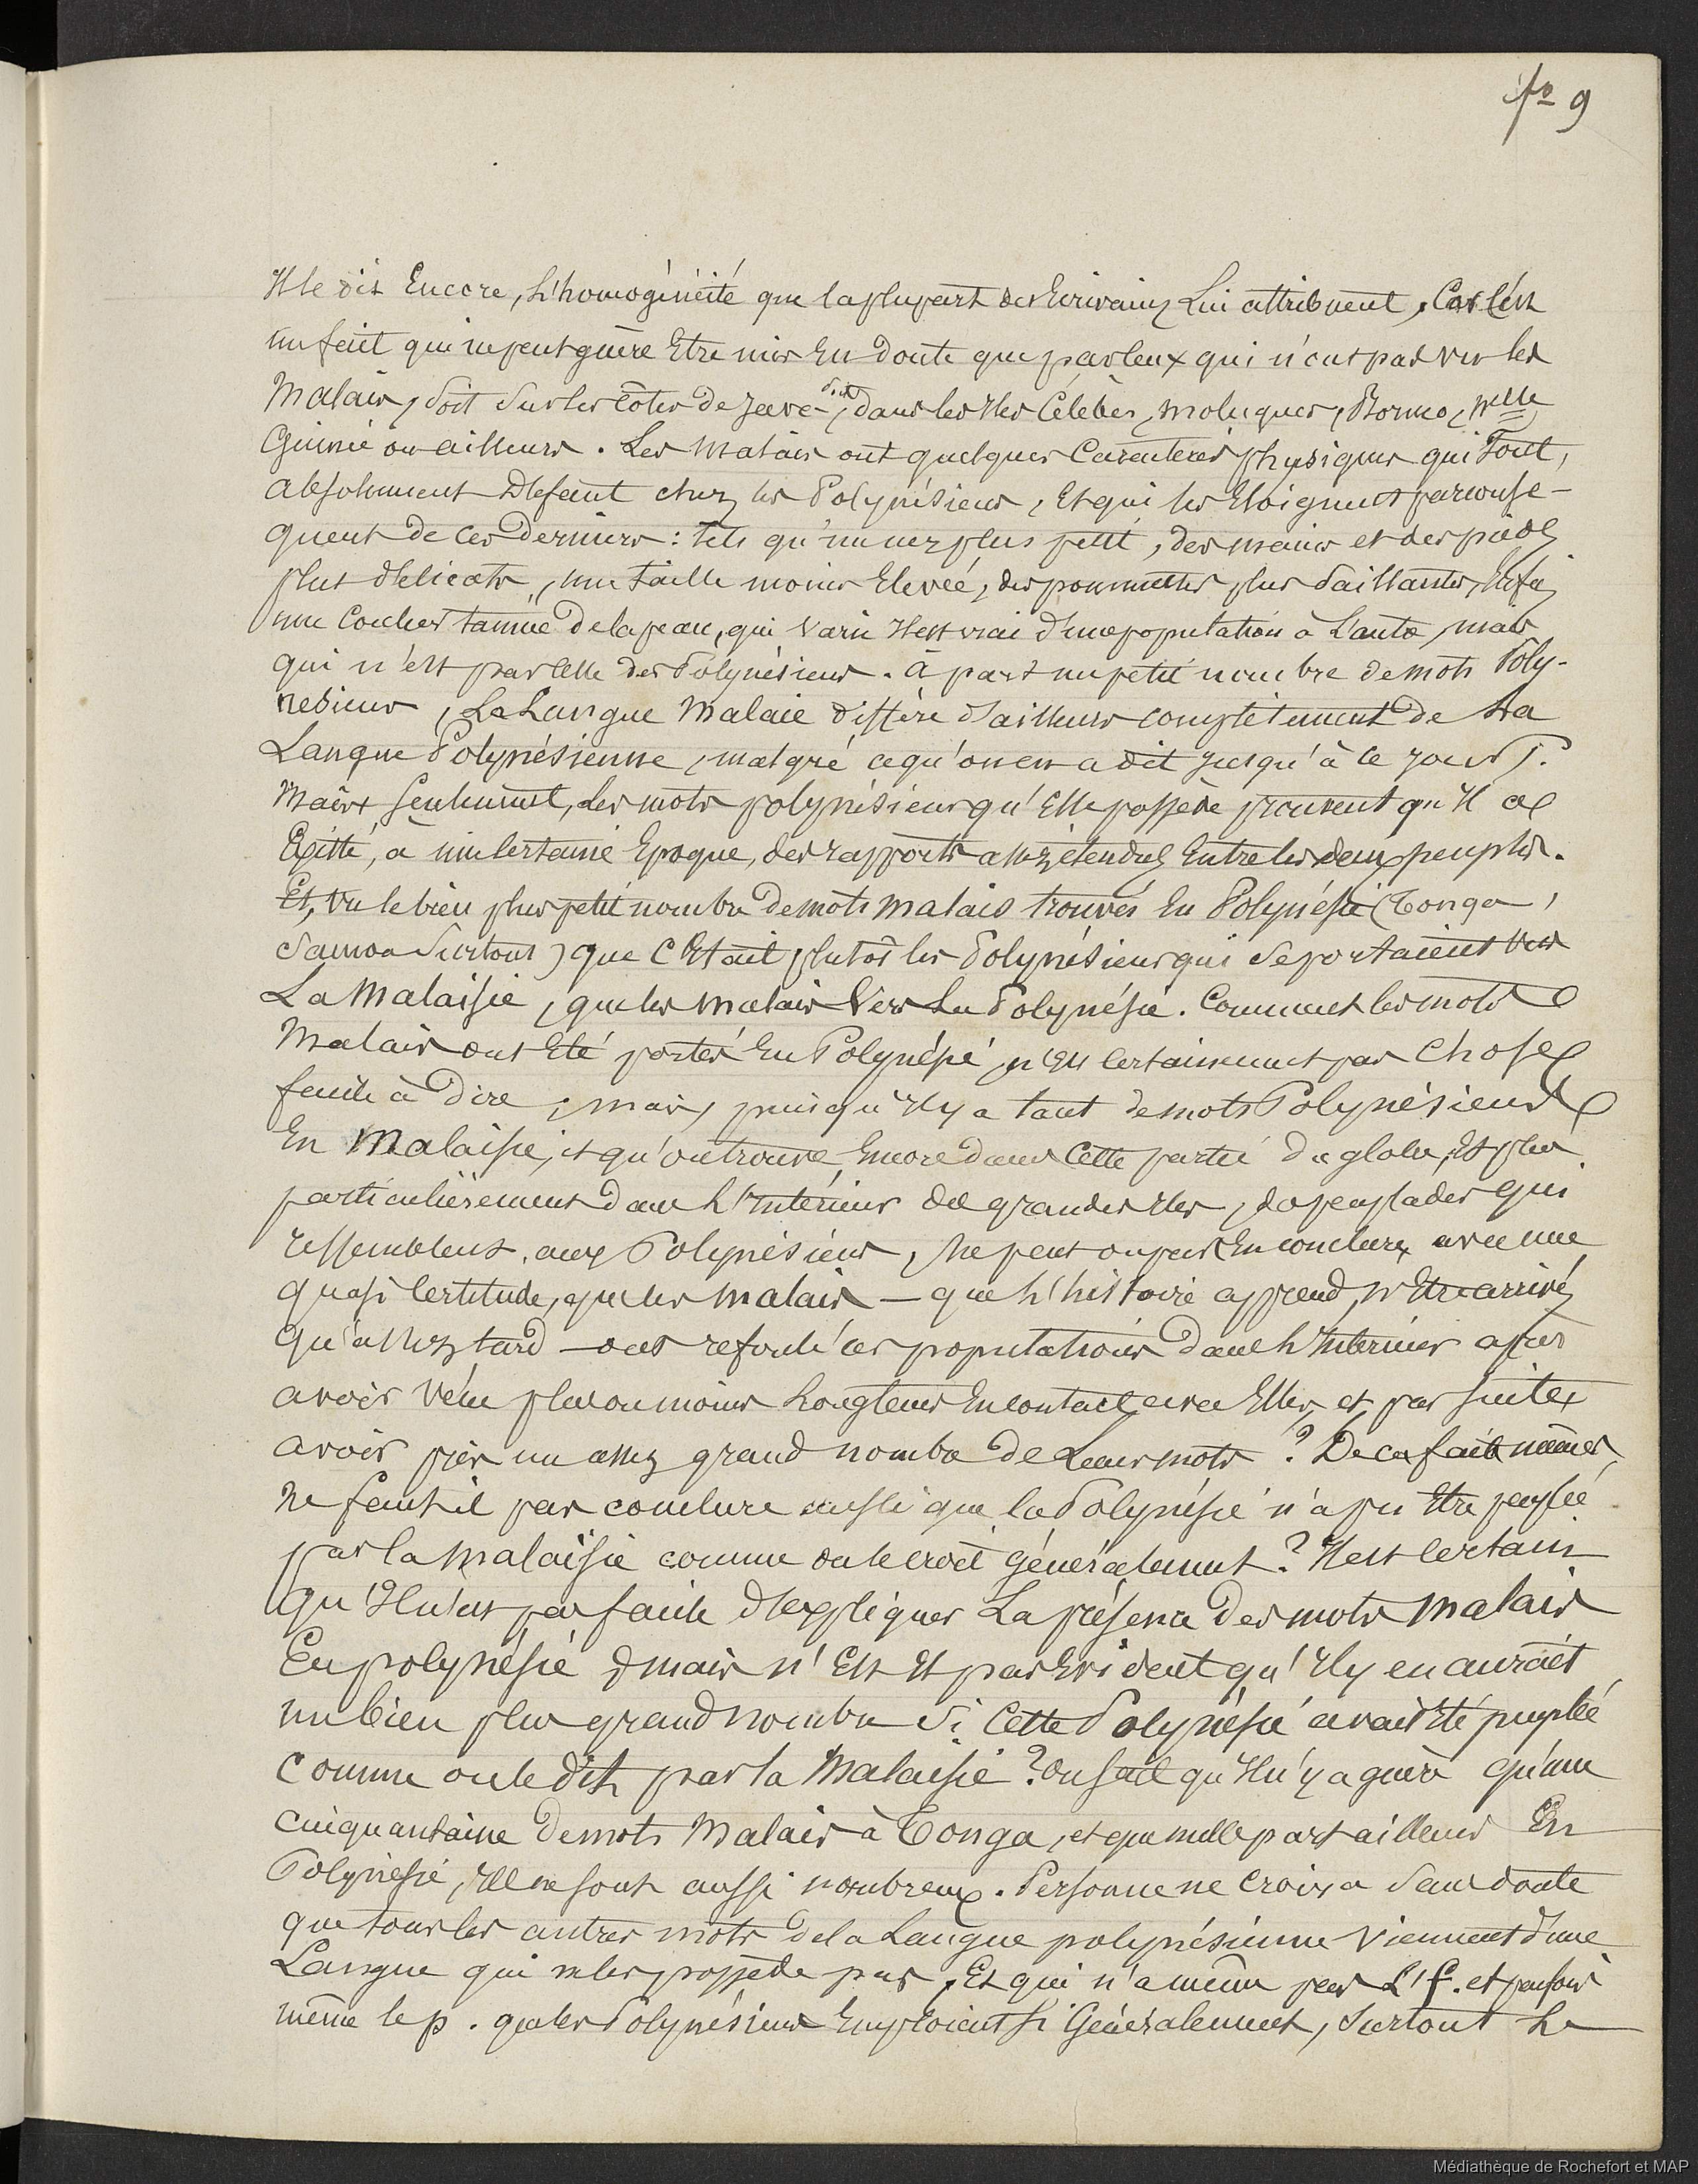 fo 9
Il le dit Encore, L'homogénéité que la plupart des Ecrivains Lui attribuent, Car C'est
un fait qui ne peut guère Etre mis En Doute que par ceux qui n'ont pas vu les
Malais, soit sur les côtes de Java, soit dans les Iles Célèbes, moluques, Borneo, Nelle
Guinée ou ailleurs. Les Malais ont quelques Caractères physiques qui font,
absolument Défaut chez les Polynésiens, Et qui les Eloignent par consé-
quent de ces Derniers : tels qu'un nez plus petit, des mains et des pieds
plus délicats, une taille moins Elevée, des pommettes plus saillantes, Enfin
une couleur tannée de la peau, qui varie Il est vrai d'une population à L'autre, mais
qui n'est pas celle des Polynésiens. à part un petit nombre de mots Poly-
nésiens, La Langue Malaie diffère d'ailleurs complètement de La
Langue Polynésienne, malgré ce qu'on en a dit jusqu'à ce jour.
Mais seulement, Les mots polynésiens qu'Elle possède prouvent qu'Il a
Existé, à une certaine Epoque, des rapports assez étendus Entre les deux peuples.
Et, vu le bien plus petit nombre de mots Malais trouvés En Polynésie (Tonga,
Samoa surtout) que C'Etait plutôt les Polynésiens qui se portaient vers
La Malaisie, que les Malais Vers La Polynésie. Comment les mots
Malais ont Eté portés En Polynésie, n'Est certainement pas chose
facile à Dire, mais, puisqu'Il y a tant de mots Polynésiens
En Malaisie, et qu'on trouve Encore dans Cette partie du globe, Et plus
particulièrement dans L'Intérieur des grandes Iles, des peuplades qui
ressemblent aux Polynésiens, Ne peut on pas En conclure avec une
quasi Certitude, que les Malais — que L'histoire apprend n'Etre arrivés
qu'assez tard — ont refoulé ces populations Dans L'Intérieur après
avoir vécu plus ou moins Longtems En contact avec Elles, et par suite
avoir pris un assez grand nombre de Leurs mots ? De ces faits mêmes,
Ne faut il pas conclure aussi que la Polynésie n'a pu Etre peuplée
par la Malaisie comme on le croit généralement ? Il est Certain
qu'Il n'est pas facile d'expliquer La présence des mots Malais
En polynésie mais n'Est Il pas Evident qu'Il y en aurait
un bien plus grand nombre Si Cette Polynésie avait Eté peuplée
Comme on le dit par la Malaisie ? On sait qu'Il n'y a guère qu'une
cinquantaine de mots Malais à Tonga, et que nulle part ailleurs En
Polynésie, Ils ne sont aussi nombreux. Personne ne Croira sans doute
que tous les autres mots de la Langue polynésienne Viennent d'une
Langue qui ne les possède pas, Et qui n'a même pas L'f. et parfois
même le p. que les Polynésiens Emploient si Généralement, surtout Le
Médiathèque de Rochefort et MAP